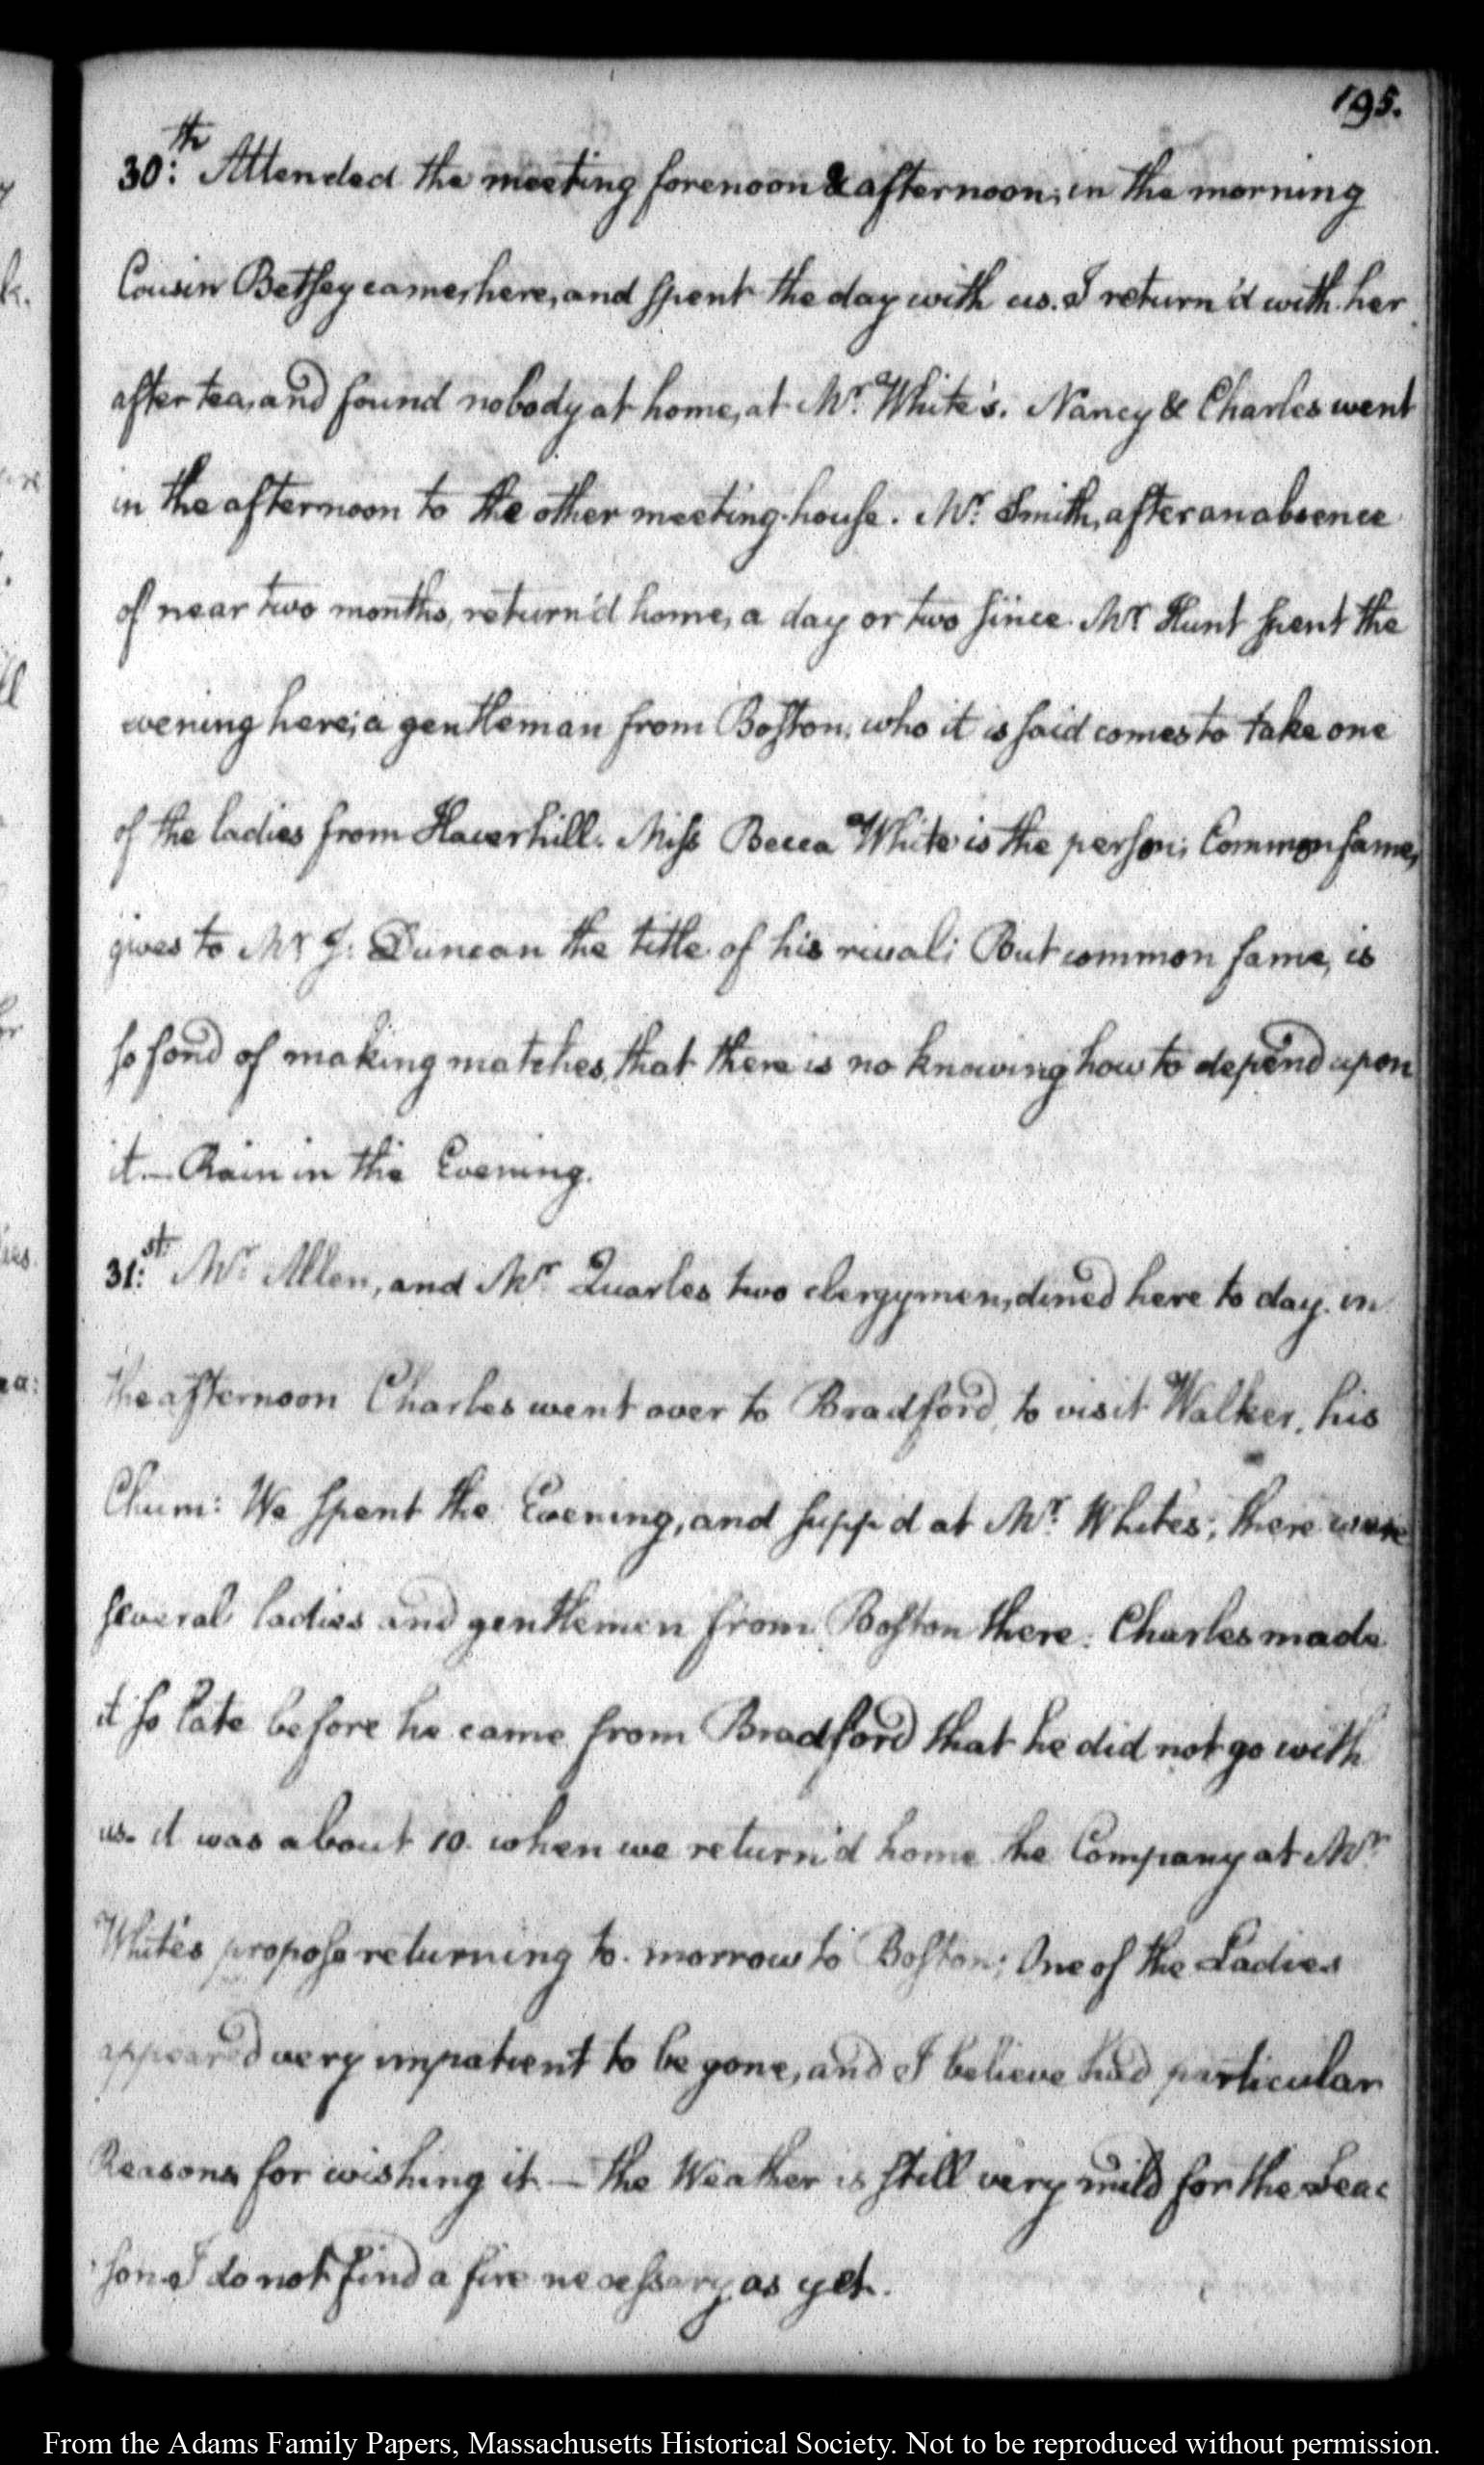 195.
30:th Attended the meeting forenoon & afternoon; in the morning
Cousin Betsey came, here, and spent the day with us. I return'd with her
after tea, and found nobody at home, at Mr. White's. Nancy & Charles went
in the afternoon to the other meeting-house. Mr. Smith, after an absence
of near two months, return'd home, a day or two since. Mr. Hunt spent the
evening here; a gentleman from Boston, who it is said comes to take one
of the ladies from Haverhill. Miss Becca White is the person; Common fame,
gives to Mr J: Duncan the title of his rival; But common fame, is
so fond of making matches, that there is no knowing how to depend upon
it.— Rain in the Evening.
31:st Mr. Allen, and Mr. Quarles two clergymen, dined here to day. in
the afternoon Charles went over to Bradford, to visit Walker, his
Chum: We spent the Evening, and supp'd at Mr. White's; there were
several ladies and gentlemen from Boston there. Charles made
it so late before he came from Bradford that he did not go with
us. it was about 10. when we return'd home the Company at Mr.
White's propose returning to-morrow to Boston; One of the Ladies
appeared very impatient to be gone, and I believe had particular
Reasons for wishing it.— the Weather is still very mild for the Sea-
son I do not find a fire necessary as yet.
From the Adams Family Papers, Massachusetts Historical Society. Not to be reproduced without permission.